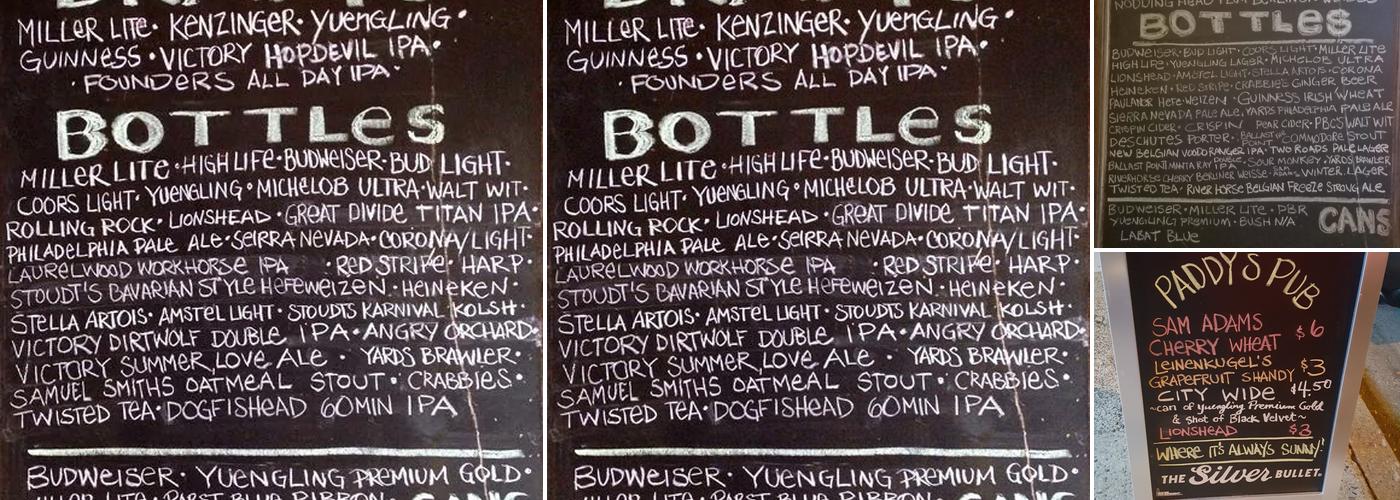 MILLER LITE· KENZINGER· YUENGLING·
GUINNESS · VICTORY HOPDEVIL IPA·
·FOUNDERS ALL DAY IPA·
BOTTLES
MILLER LITE ·HIGH LIFE·BUDWEISER·BUD LIGHT·
COORS LIGHT· YUENGLING·MICHELOB ULTRA·WALT WIT·
ROLLING ROCK· LIONSHEAD ·GREAT DIVIDE TITAN IPA·
PHILADELPHIA PALE ALE·SEIRRA NEVADA·CORONA/LIGHT·
LAURELWOOD WORKHORSE IPA ·RED STRIPE· HARP·
STOUDT'S BAVARIAN STYLE HEFEWEIZEN·HEINEKEN·
STELLA ARTOIS· AMSTEL LIGHT· STOUDTS KARNIVAL KOLSH·
VICTORY DIRTWOLF DOUBLE IPA·ANGRY ORCHARD·
VICTORY SUMMER LOVE ALE · YARDS BRAWLER·
SAMUEL SMITHS OATMEAL STOUT· CRABBIES·
TWISTED TEA·DOGFISHEAD 60MIN IPA
BUDWEISER· YUENGLING PREMIUM GOLD·
MILLER LITE· KENZINGER· YUENGLING·
GUINNESS · VICTORY HOPDEVIL IPA·
·FOUNDERS ALL DAY IPA·
BOTTLES
MILLER LITE ·HIGH LIFE·BUDWEISER·BUD LIGHT·
COORS LIGHT· YUENGLING·MICHELOB ULTRA·WALT WIT·
ROLLING ROCK· LIONSHEAD ·GREAT DIVIDE TITAN IPA·
PHILADELPHIA PALE ALE·SEIRRA NEVADA·CORONA/LIGHT·
LAURELWOOD WORKHORSE IPA ·RED STRIPE· HARP·
STOUDT'S BAVARIAN STYLE HEFEWEIZEN·HEINEKEN·
STELLA ARTOIS· AMSTEL LIGHT· STOUDTS KARNIVAL KOLSH·
VICTORY DIRTWOLF DOUBLE IPA·ANGRY ORCHARD·
VICTORY SUMMER LOVE ALE · YARDS BRAWLER·
SAMUEL SMITHS OATMEAL STOUT· CRABBIES·
TWISTED TEA·DOGFISHEAD 60MIN IPA
BUDWEISER· YUENGLING PREMIUM GOLD·
BOTTLES
BUDWEISER·BUD LIGHT·COORS LIGHT·MILLER LITE
HIGH LIFE·YUENGLING LAGER·MICHELOB ULTRA
LIONSHEAD·AMSTEL LIGHT·STELLA ARTOIS·CORONA
HEINEKEN·RED STRIPE·CRABBIES GINGER BEER
PAULANER HEFE-WEIZEN ·GUINNESS IRISH WHEAT
SIERRA NEVADA PALE ALE·YARDS PHILADELPHIA PALE ALE
CRISPIN CIDER· CRISPIN PEAR CIDER·PBC'S WALT WIT
DESCHUTES PORTER· BALLAST POINT COMMODORE STOUT
NEW BELGIAN VOODO RANGER IPA· TWO ROADS PALE LAGER
BALLAST POINT MANTA RAY DOUBLE IPA ·SOUR MONKEY·YARDS BRAWLER
RIVERHORSE CHERRY BERLINER WEISSE· WINTER LAGER
TWISTED TEA· RIVER HORSE BELGIAN FREEZE STRONG ALE
BUDWEISER·MILLER LITE·PBR
YUENGLING PREMIUM·BUSH N/A
LABAT BLUE
CANS
PADDY'S PUB
SAM ADAMS
CHERRY WHEAT $6
LEINENKUGEL'S
GRAPEFRUIT SHANDY $3
CITY WIDE $4.50
~can of Yuengling Premium Gold
& Shot of Black Velvet~
LIONSHEAD $3
WHERE IT'S ALWAYS SUNNY!
THE Silver BULLET.